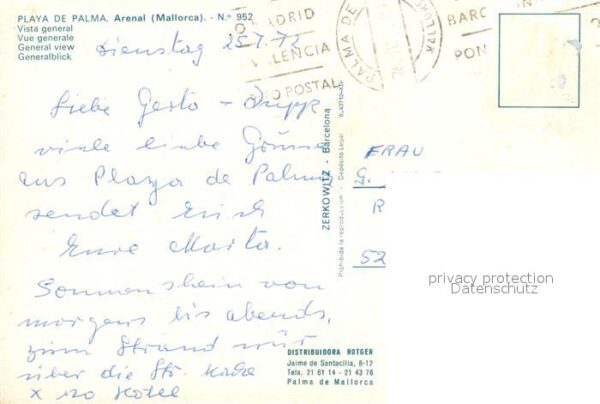 PLAYA DE PALMA. Arenal (Mallorca). - N.º 952
Vista general
Vue generale
General view
Generalblick
Dienstag 25.7.72
MADRID
VALENCIA
POSTAL
PALMA DE
BARC
PON
Liebe Gerto -
viele liebe Grüsse
aus Playa de Palma
sendet Euch
Eure Marta.
Sonnenschein von
morgens bis abends,
zum Strand nur
über die Str.
x no Hotel
ZERKOWITZ - Barcelona
Prohibida la reproducción - Depósito Legal
FRAU
G.
R
52
privacy protection
Datenschutz
DISTRIBUIDORA ROTGER
Jaime de Santacilia, 8-12
Tels. 21 61 14 - 21 43 76
Palma de Mallorca